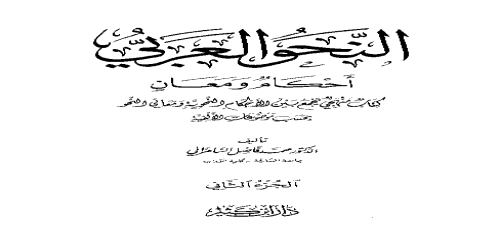 النحو العربي
أحكام ومعان
كتاب منهجي يجمع بين الأحكام النحوية ومعاني النحو
بحسب موضوعات الألفية
تأليف
الدكتور محمد فاضل السامرائي
جامعة الشارقة - كلية
الجزء الثاني
دار ابن كثير